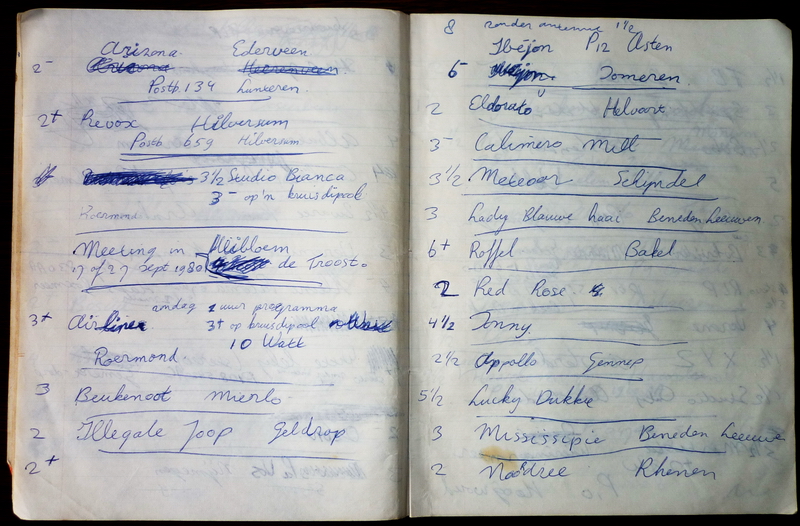 Arizona Ederveen
2-
Postb. 134 Lunteren.
2+ Revox Hilversum
Postb 659 Hilversum
3 1/2 Studio Bianca
3- op'n kruisdipool
Roermond
Meeting in Heibloem
17 of 27 Sept 1980 de Troost.
zondag 1 uur programma
3+ Airliner 3+ op kruisdipool
10 Watt
Roermond
3 Beukenoot Mierlo
2 Illegale Joop Geldrop
2+
8 zonder antenne 1 1/2
Ibejon P12 Asten
5 Someren.
2 Eldorato Helvoirt
3- Calimero Mill
3 1/2 Meteoor Schijndel
3 Lady Blauwe haai Beneden Leeuwen
6+ Roffel Bakel
2 Red Rose
4 1/2 Jonny
2 1/2 Appollo Gennep
5 1/2 Lucky Dukkie
3 Mississipie Beneden Leeuwe
2 Noordzee Rhenen